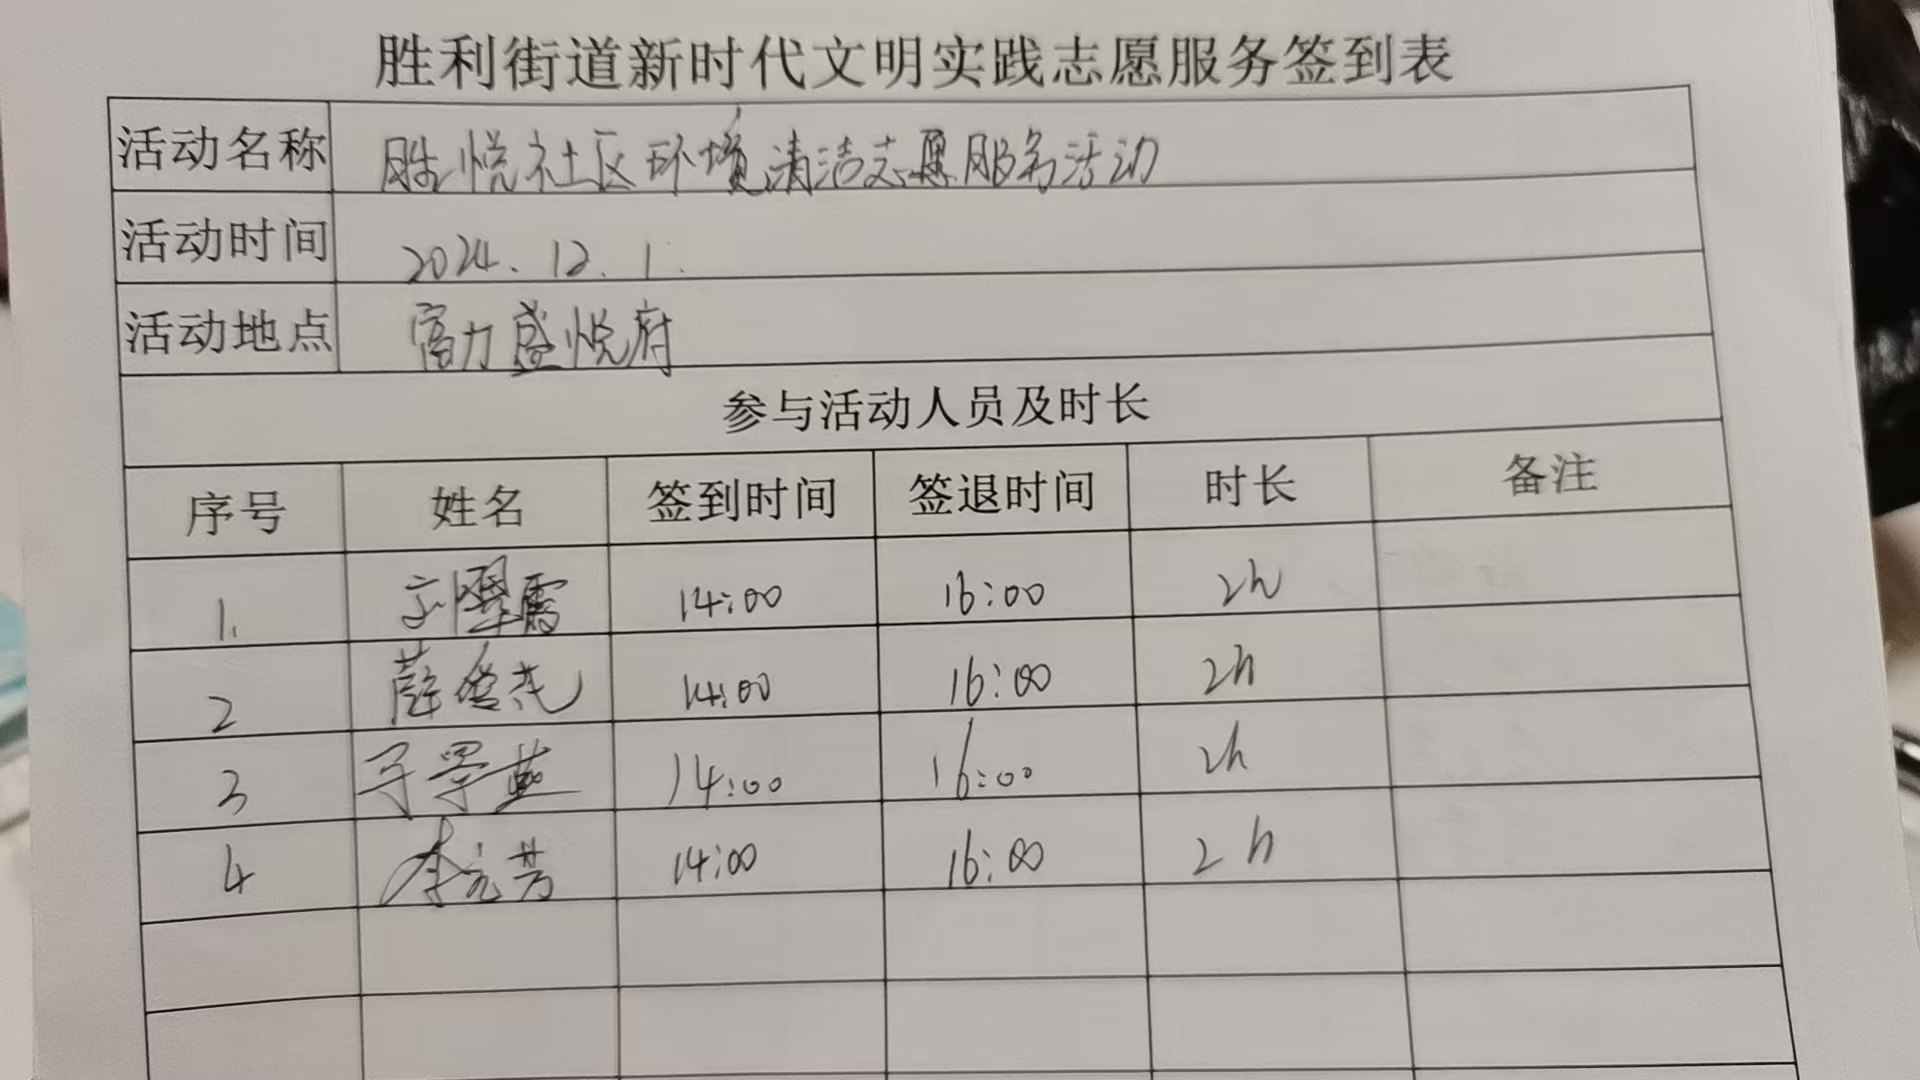 胜利街道新时代文明实践志愿服务签到表
活动名称 胜悦社区环境清洁志愿服务活动
活动时间 2024.12.1.
活动地点 富力盛悦府
参与活动人员及时长
序号 姓名 签到时间 签退时间 时长 备注
1. 14:00 16:00 2h
2 薛 14:00 16:00 2h
3 14:00 16:00 2h
4 李元芳 14:00 16:00 2h